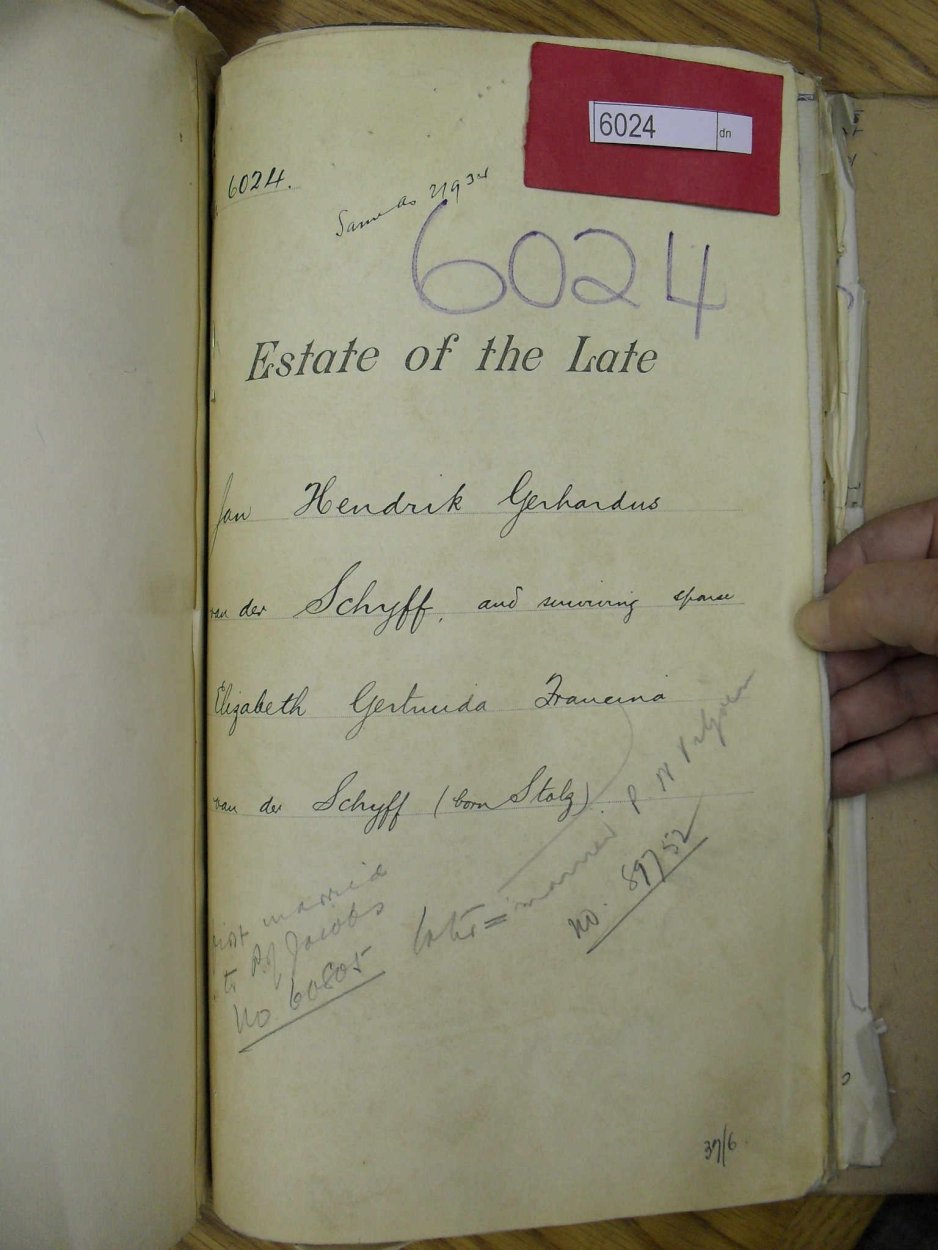 6024 dn
6024.
Same as
6024
Estate of the Late
Jan Hendrik Gerhardus
van der Schyff, and surviving spouse
Elizabeth Gertruida Francina
van der Schyff (born Stolz)
first married
to Jacobs
No 60805
later = married P
no. 89752
37/6